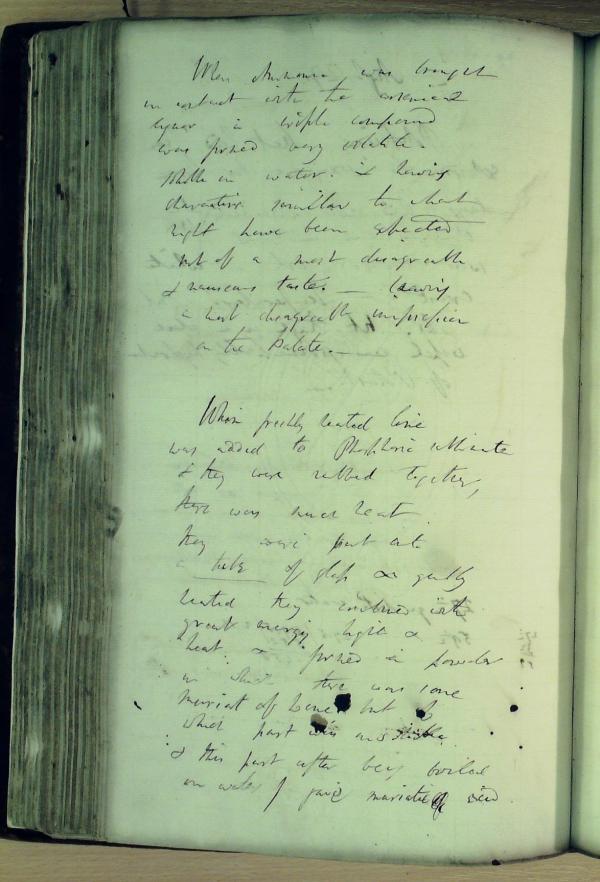 When Ammonia was brought
in contact with the arsenical
liquor a triple compound
was formed very volatile
soluble in water. & having
characters similar to what
might have been expected
but of a most disagreeable
& nauseous taste. — leaving
a most disagreeable impression
on the Palate. —
When freshly heated lime
was added to Phosphoric sublimate
& they were rubbed together,
there was much heat
they were put into
a tube of glass & gently
heated they combined with
great energy light &
heat. & formed a powder
in which there was some
muriat of Lime but of
which part was
& this part after being boiled
in water gave muriatic acid